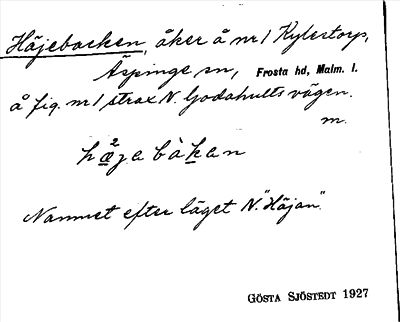 Häjebacken, åker å nr 1 Kylestorp,
Äspinge sn, Frosta hd, Malm. l.
å fig. nr 1 strax N. Godahults vägen.
m.
hæ²jabàkan
Namnet efter läget N. "Häjan".
GÖSTA SJÖSTEDT 1927